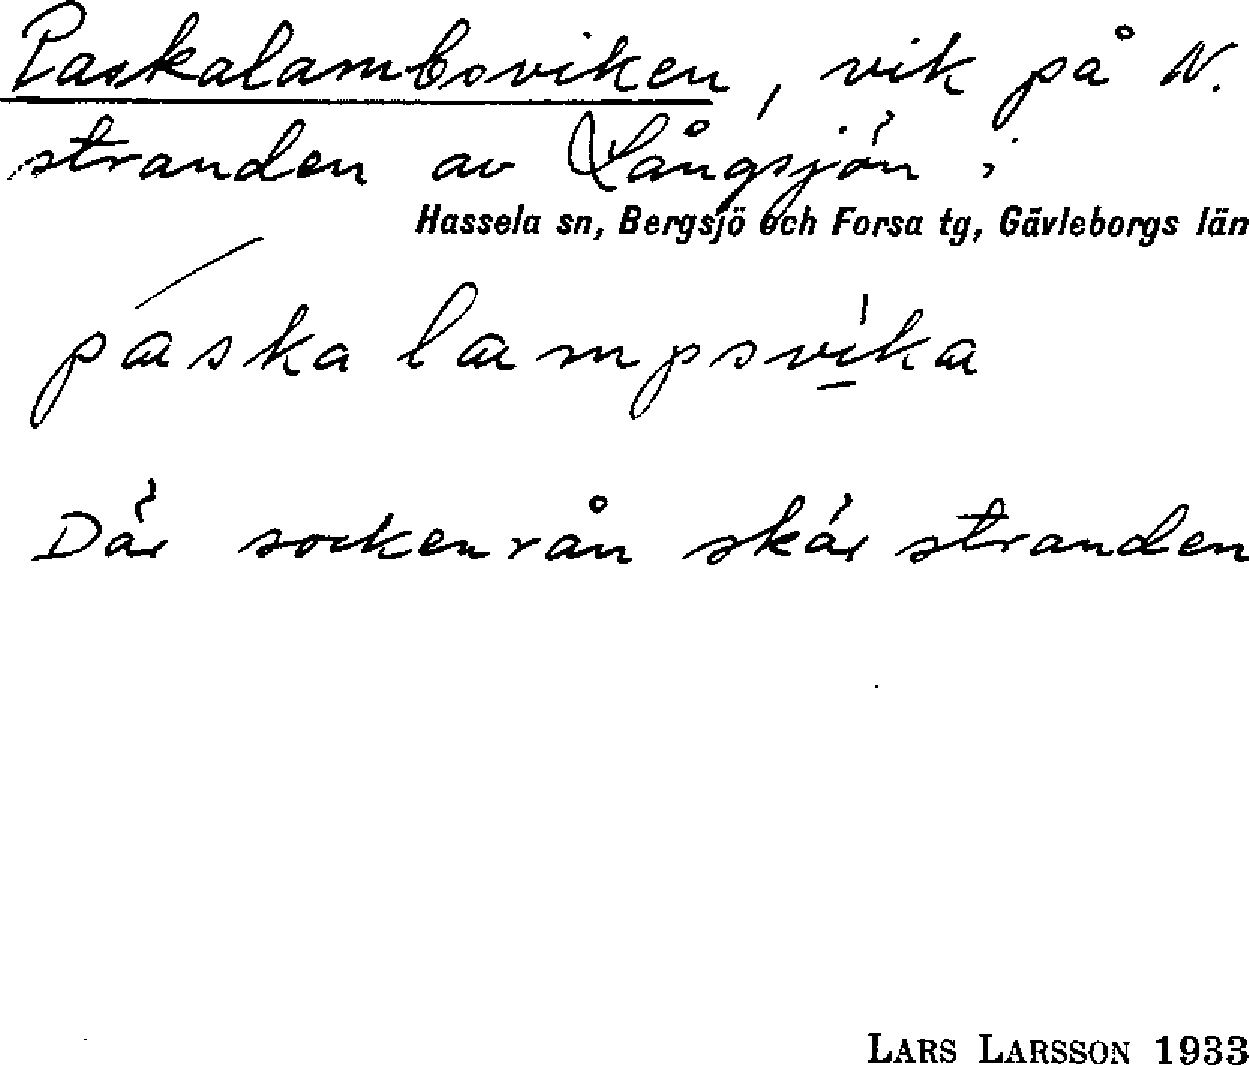 Paskalambsviken, vik på N.
stranden av Långsjön i
Hassela sn, Bergsjö och Forsa tg, Gävleborgs län
páskalampsvìka
Där sockenrån skär stranden
LARS LARSSON 1933